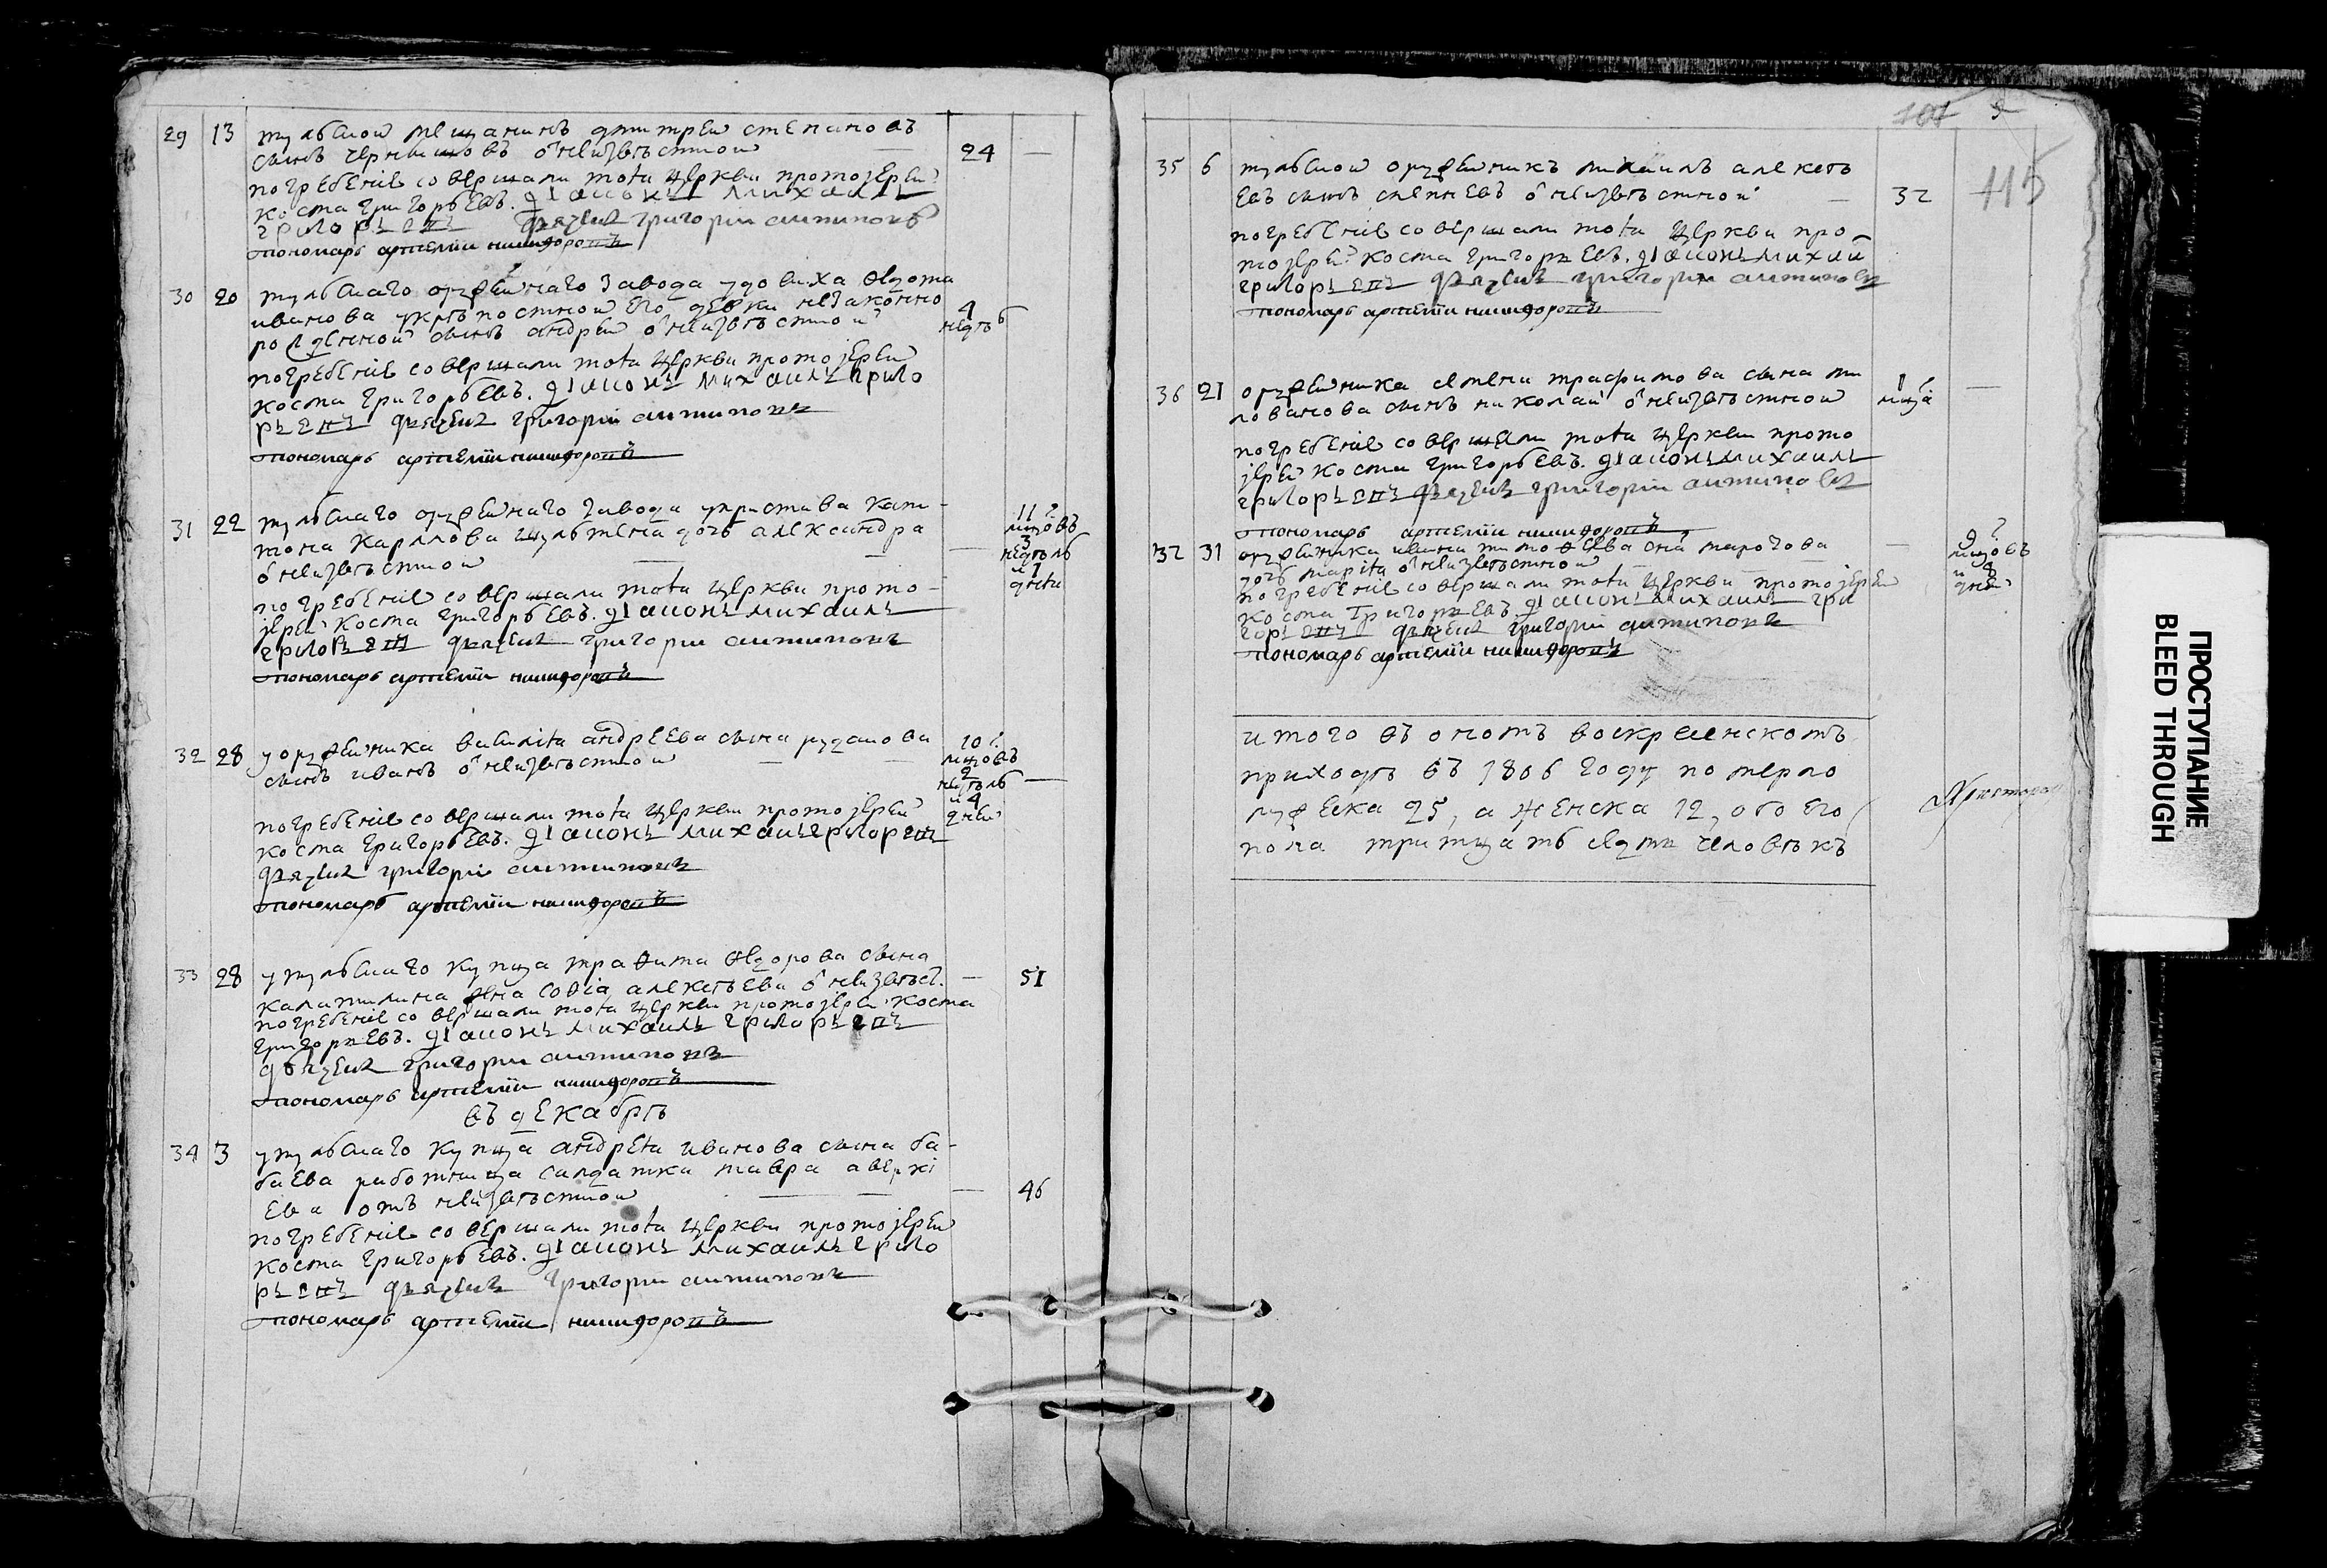 29 13 тульской мещанинъ дмитрей степановъ
сынъ чернышовъ о҃ неизвѣстной — 24 —
погребенїе совершали тоѧ церкви протоіерей
косма григорьевъ. дїаконъ михаилъ
григорьевъ дьячекъ григорїи антиповъ
пономарь артемїи никифоровъ
30 20 тульскаго оружейнаго завода удовиха ѳедота
иванова укрѣпостной его девки незаконно 4
рожденной сынъ андрей о҃ неизвѣстной недѣль
погребенїе совершали тоѧ церкви протоіерей
косма григорьевъ. дїаконъ михаилъ григо
рьевъ дьячекъ григорїи антиповъ
пономарь артемїи никифоровъ
31 22 тульскаго оружейнаго завода у пристава 11
тона карлова дочь александра — мцовъ 3
о҃ неизвѣстной — недѣль и 1
погребенїе совершали тоѧ церкви прото- днѧ
іерей косма григорьевъ. дїаконъ михаилъ
григорьевъ дьячекъ григорїи антиповъ
пономарь артемїи никифоровъ
32 28 у оружейника василїѧ андреева сына рудакова 10
сынъ иванъ о҃ неизвѣстной — мцовъ 2
недѣль —
погребенїе совершали тоѧ церкви протоіерей и 4
косма григорьевъ. дїаконъ михаилъ григорьевъ дней
дьячекъ григорїи антиповъ
пономарь артемїи никифоровъ
33 28 у тульскаго купца траѳима ѳедорова сына
жена софїа алексѣева о҃ неизвѣст. — 51
погребенїе совершали тоѧ церкви протоіерей косма
григорьевъ. дїаконъ михаилъ григорьевъ
дьячекъ григорїи антиповъ
пономарь артемїи никифоровъ
въ декабрѣ
34 3 у тульскаго купца андреѧ иванова сына ба-
баева работница салдатка мавра аверкї
ева отъ неизвѣстной — 46
погребенїе совершали тоѧ церкви протоіерей
косма григорьевъ. дїаконъ михаилъ григо
рьевъ дьячекъ григорїи антиповъ
пономарь артемїи никифоровъ
101
115
35 6 тульской оружейникъ михаилъ алексѣ
евъ сынъ о҃ неизвѣстной — 32
погребенїе совершали тоѧ церкви про
тоіерей косма григорьевъ. дїаконъ михаи
григорьевъ дьячекъ григорїи антиповъ
пономарь артемїи никифоровъ
36 21 оружейника семена трафимова сына ми 1
лованова сынъ николай о҃ неизвѣстной мца —
погребенїе совершали тоѧ церкви прото
іерей косма григорьевъ. дїаконъ михаилъ
григорьевъ дьячекъ григорїи антиповъ
пономарь артемїи никифоровъ
37 31 оружейника ивана тимоѳеева сна — 9
дочь марїѧ о҃ неизвѣстной мцовъ
погребенїе совершали тоѧ церкви протоіерей и 8
косма григорьевъ. дїаконъ михаилъ гри дней
горьевъ дьячекъ григорїи антиповъ
пономарь артемїи никифоровъ
итого въ ономъ воскресенскомъ
приходѣ въ 1806 году померло
мужеска 25, а женска 12, обоего
пола тритцать седмь человѣкъ
ПРОСТУПАНИЕ
BLEED THROUGH